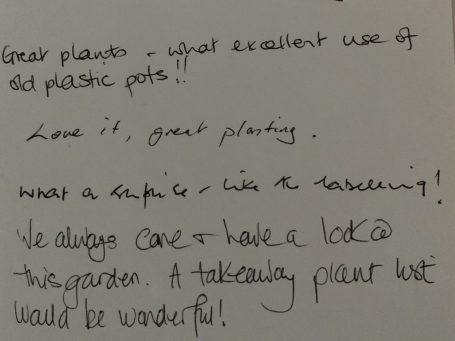 Great plants - what excellent use of
old plastic pots!!
Love it, great planting.
What a surprise - like the labelling!
We always come + have a look @
this garden. A takeaway plant list
would be wonderful!